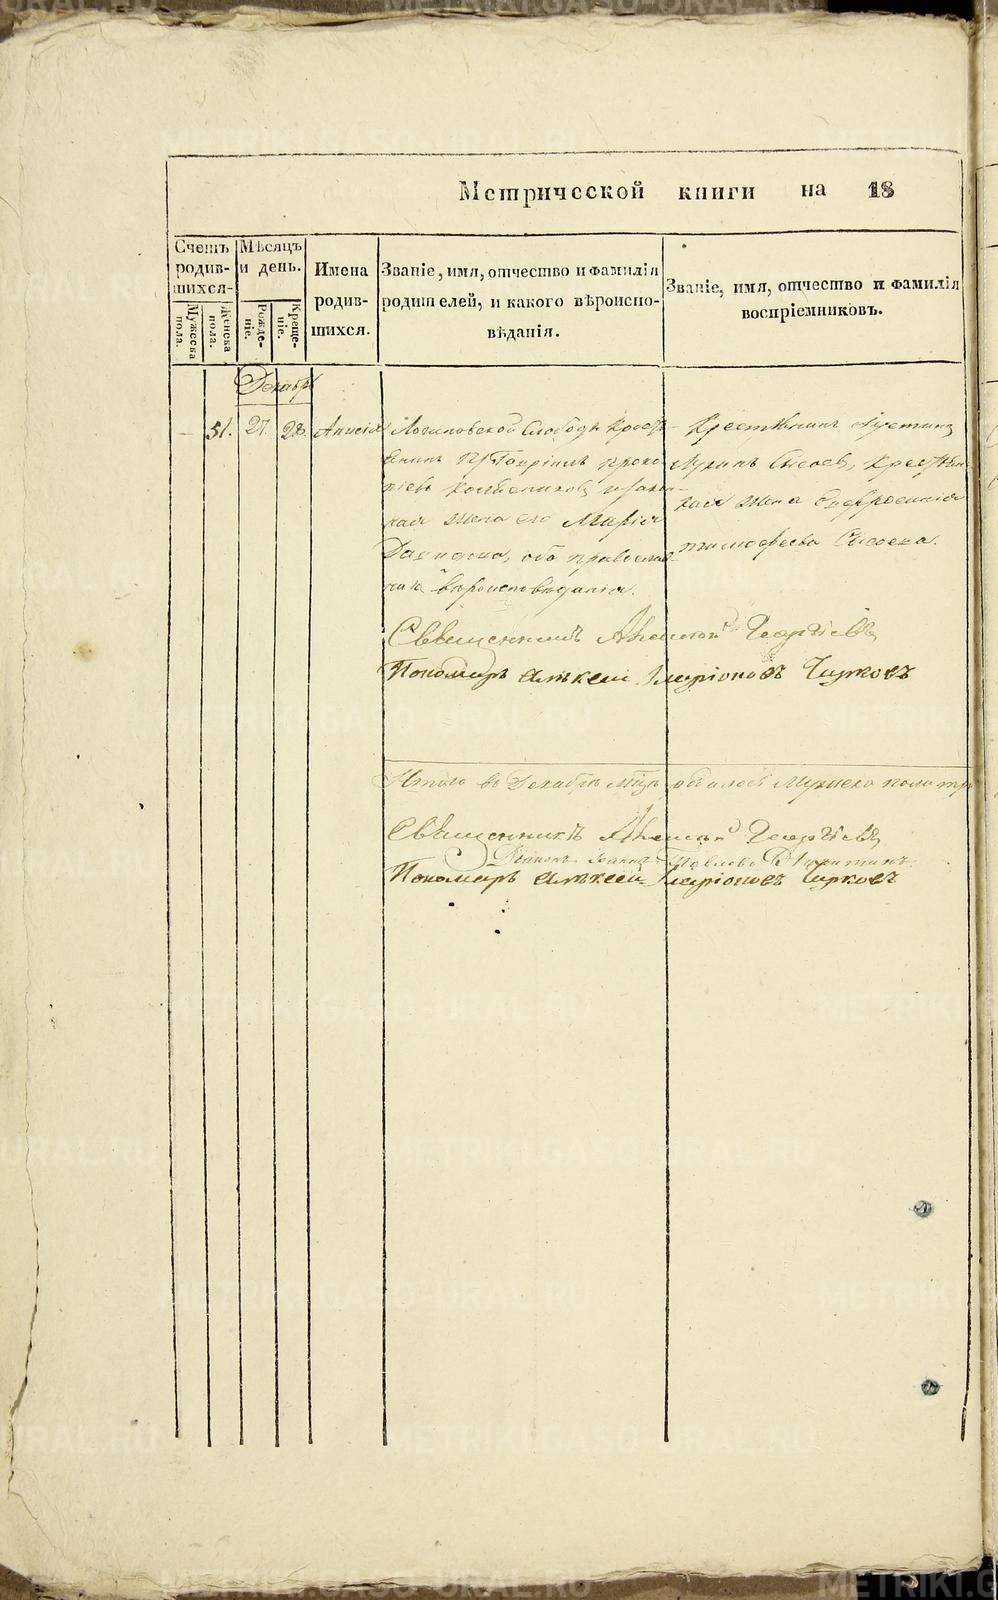 Метрической книги на 18
Счетъ родив-шихся.
Мужеска пола.
Женска пола.
Мѣсяцъ и день.
Рожде-ніе.
Креще-ніе.
Имена родив-шихся.
Званіе, имя, отчество и фамилія
родителей, и какого вѣроиспо-
вѣданія.
Званіе, имя, отчество и фамилія
воспріемниковъ.
Декабрь
51. 27. 28. Анисія
Слободы Крест-
янинъ Гавріилъ Проко-
піевъ закон-
ная жена его Марія
оба православ-
наго вѣроисповѣданія.
Крестьянинъ
Лукинъ Сысоевъ, Крестьян-
ская жена
Тимофеева Сысоева.
Священникъ Георгіевъ
Пономарь Алѣксей Иларіоновъ Чирковъ
Итого въ Декабрѣ Мужеска пола
Священникъ Георгіевъ
Діаконъ Іоаннъ Павловъ Никитинъ
Пономарь Алѣксей Иларіоновъ Чирковъ
METRIKI.GASO-URAL.RU